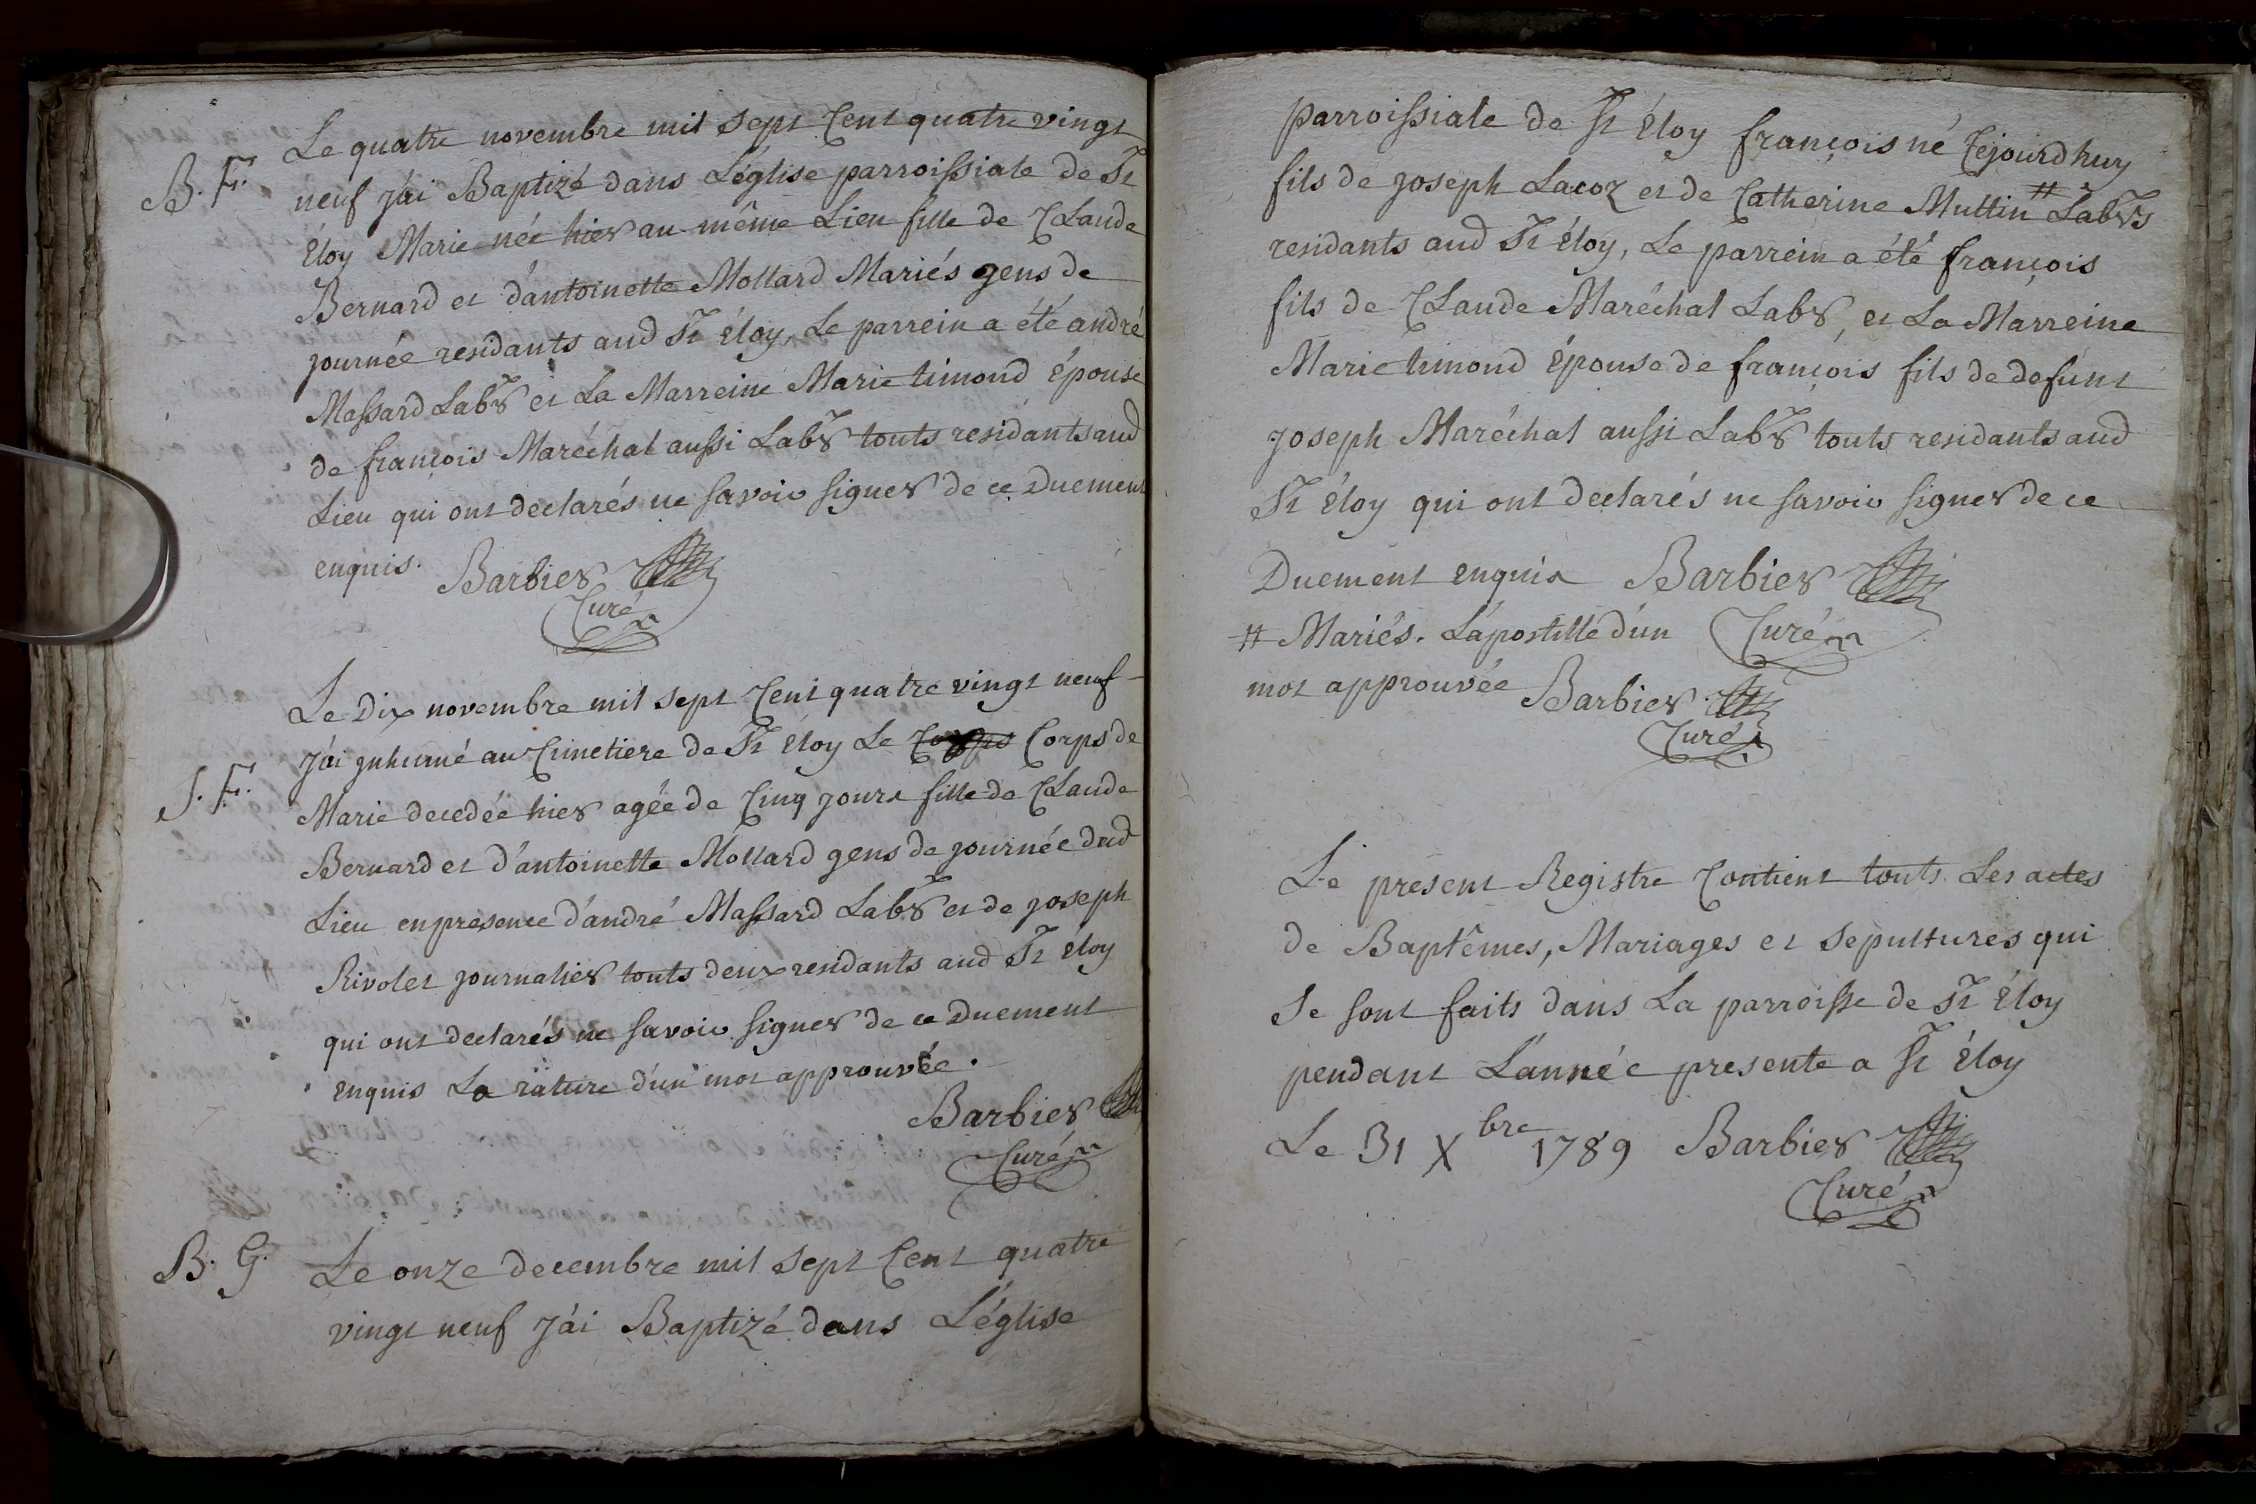 Le quatre novembre mil sept Cent quatre vingt
B. F. neuf j'ai Baptizé dans L'église parroissiale de St
Éloy Marie née hier au même Lieu fille de Claude
Bernard et d'antoinette Mollard Mariés gens de
journée residants aud St Éloy, Le parrein a été andré
Massard Labr et La Marreine Marie timond Épouse
de françois Maréchal aussi Labr touts residants aud
Lieu qui ont declarés ne savoir signer de ce Duement
enquis. Barbier
Curé
Le Dix novembre mil sept Cent quatre vingt neuf
j'ai inhumé au Cimetiere de St Éloy Le Corps Corps de
S. F. Marie decedée hier agée de Cinq jours fille de Claude
Bernard et d'antoinette Mollard gens de journée dud
Lieu en presence d'andré Massard Labr et de joseph
Rivolet journalier touts deux residants aud St Éloy
qui ont declarés ne savoir signer de ce Duement
enquis La rature d'un mot approuvée.
Barbier
Curé
B. G. Le onze decembre mil sept Cent quatre
vingt neuf j'ai Baptizé dans L'église
parroissiale de St Éloy françois né Cejourd'huy
fils de joseph Lacoz et de Catherine Muttin # Labrs
residants aud St Éloy, Le parrein a été françois
fils de Claude Maréchal Labr, et La Marreine
Marie timond Épouse de françois fils de defunt
joseph Maréchal aussi Labr touts residants aud
St Éloy qui ont declarés ne savoir signer de ce
Duement enquis Barbier
# Mariés. L'apostille d'un Curé
mot approuvée Barbier
Curé
Le present Registre Contient touts Les actes
de Baptêmes, Mariages et Sepultures qui
se sont faits dans La parroisse de St Éloy
pendant L'année presente a St Éloy
Le 31 Xbre 1789 Barbier
Curé